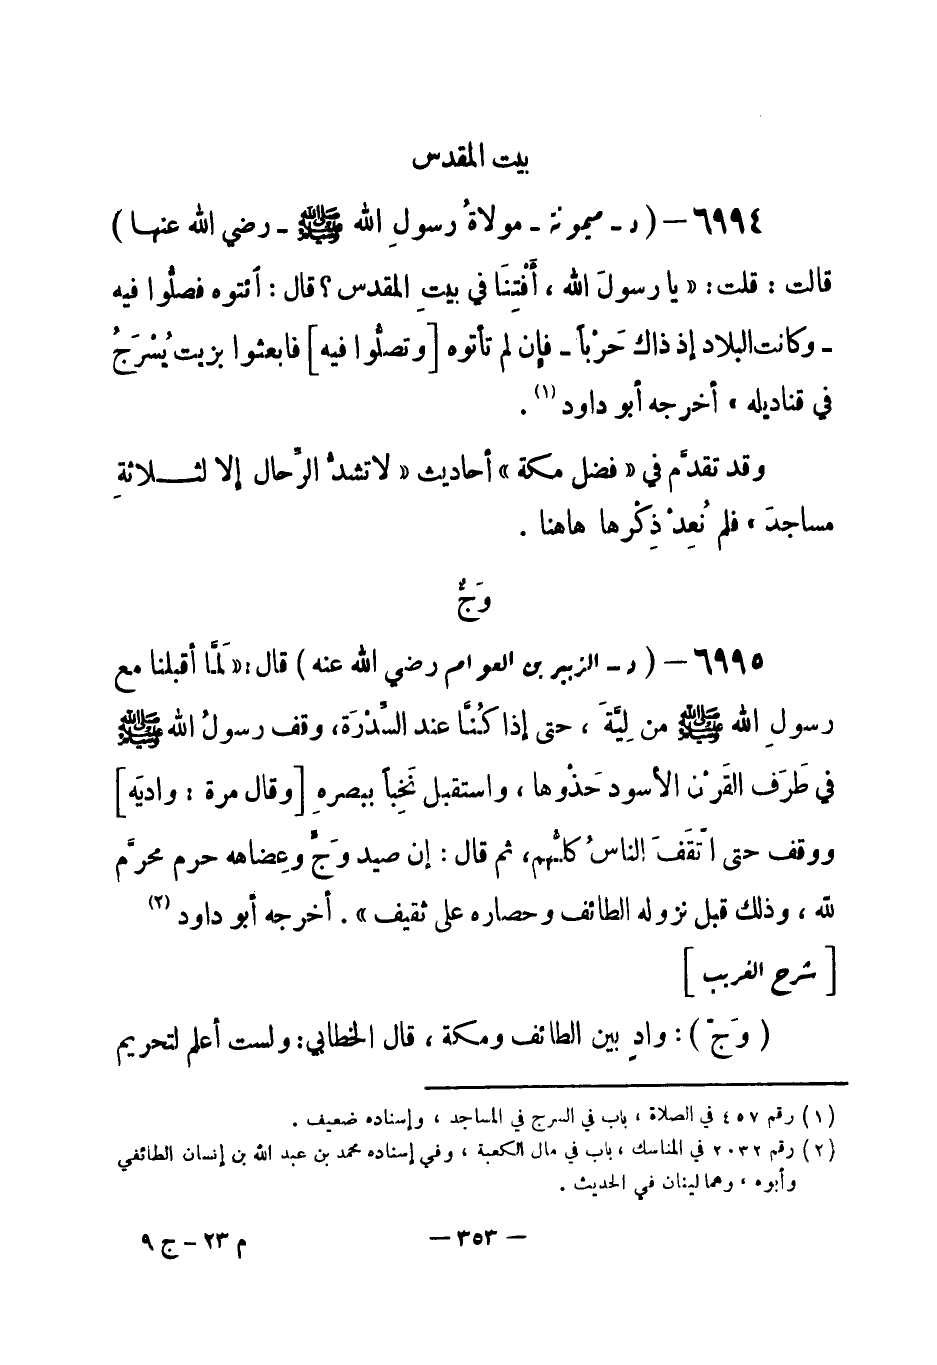 بيت المقدس
٦٩٩٤ – ( د ـ ميمونة ـ مولاةُ رسولِ الله ﷺ ـ رضي الله عنها )
قالت : قلت : « يا رسولَ الله ، أَفْتِنَا في بيتِ المقدس ؟ قال : ٱئتوه فصلُّوا فيه
ـ وكانت البلاد إذ ذاك حَرْباً ـ فإن لم تأتوه [ وتصلُّوا فيه ] فابعثوا بزيت يُسْرَجُ
في قناديله » أخرجه أبو داود (١) .
وقد تقدَّم في « فضل مكة » أحاديث « لا تشدُّ الرِّحال إلا لثـلاثةِ
مساجدَ » فلم نُعِدْ ذِكْرها هاهنا .
وَجٌّ
٦٩٩٥ – ( د ـ الزبير بن العوام رضي الله عنه ) قال : « لَمَّا أقبلنا مع
رسولِ الله ﷺ من لِيَّةَ ، حتى إذا كُنَّا عند السِّدْرَة ، وقف رسولُ الله ﷺ
في طَرَف القَرْن الأسود حَذْوها ، واستقبل نَخِباً ببصرهِ [ وقال مرة : واديَه ]
ووقف حتى اتَّقَفَ الناسُ كلُّهم ، ثم قال : إن صيد وَجٍّ وعِضاهه حرم محرَّم
لله ، وذلك قبل نزوله الطائف وحصاره على ثقيف » . أخرجه أبو داود (٢)
[ شرح الغريب ]
( وَجّ ) : وادٍ بين الطائف ومكة ، قال الخطابي : ولست أعلم لتحريم
(١) رقم ٤٥٧ في الصلاة ، باب في السرج في المساجد ، وإسناده ضعيف .
(٢) رقم ٢٠٣٢ في المناسك ، باب في مال الكعبة ، وفي إسناده محمد بن عبد الله بن إنسان الطائفي
وأبوه ، وهما لينان في الحديث .
– ٣٥٣ –
م ٢٣ – ج ٩